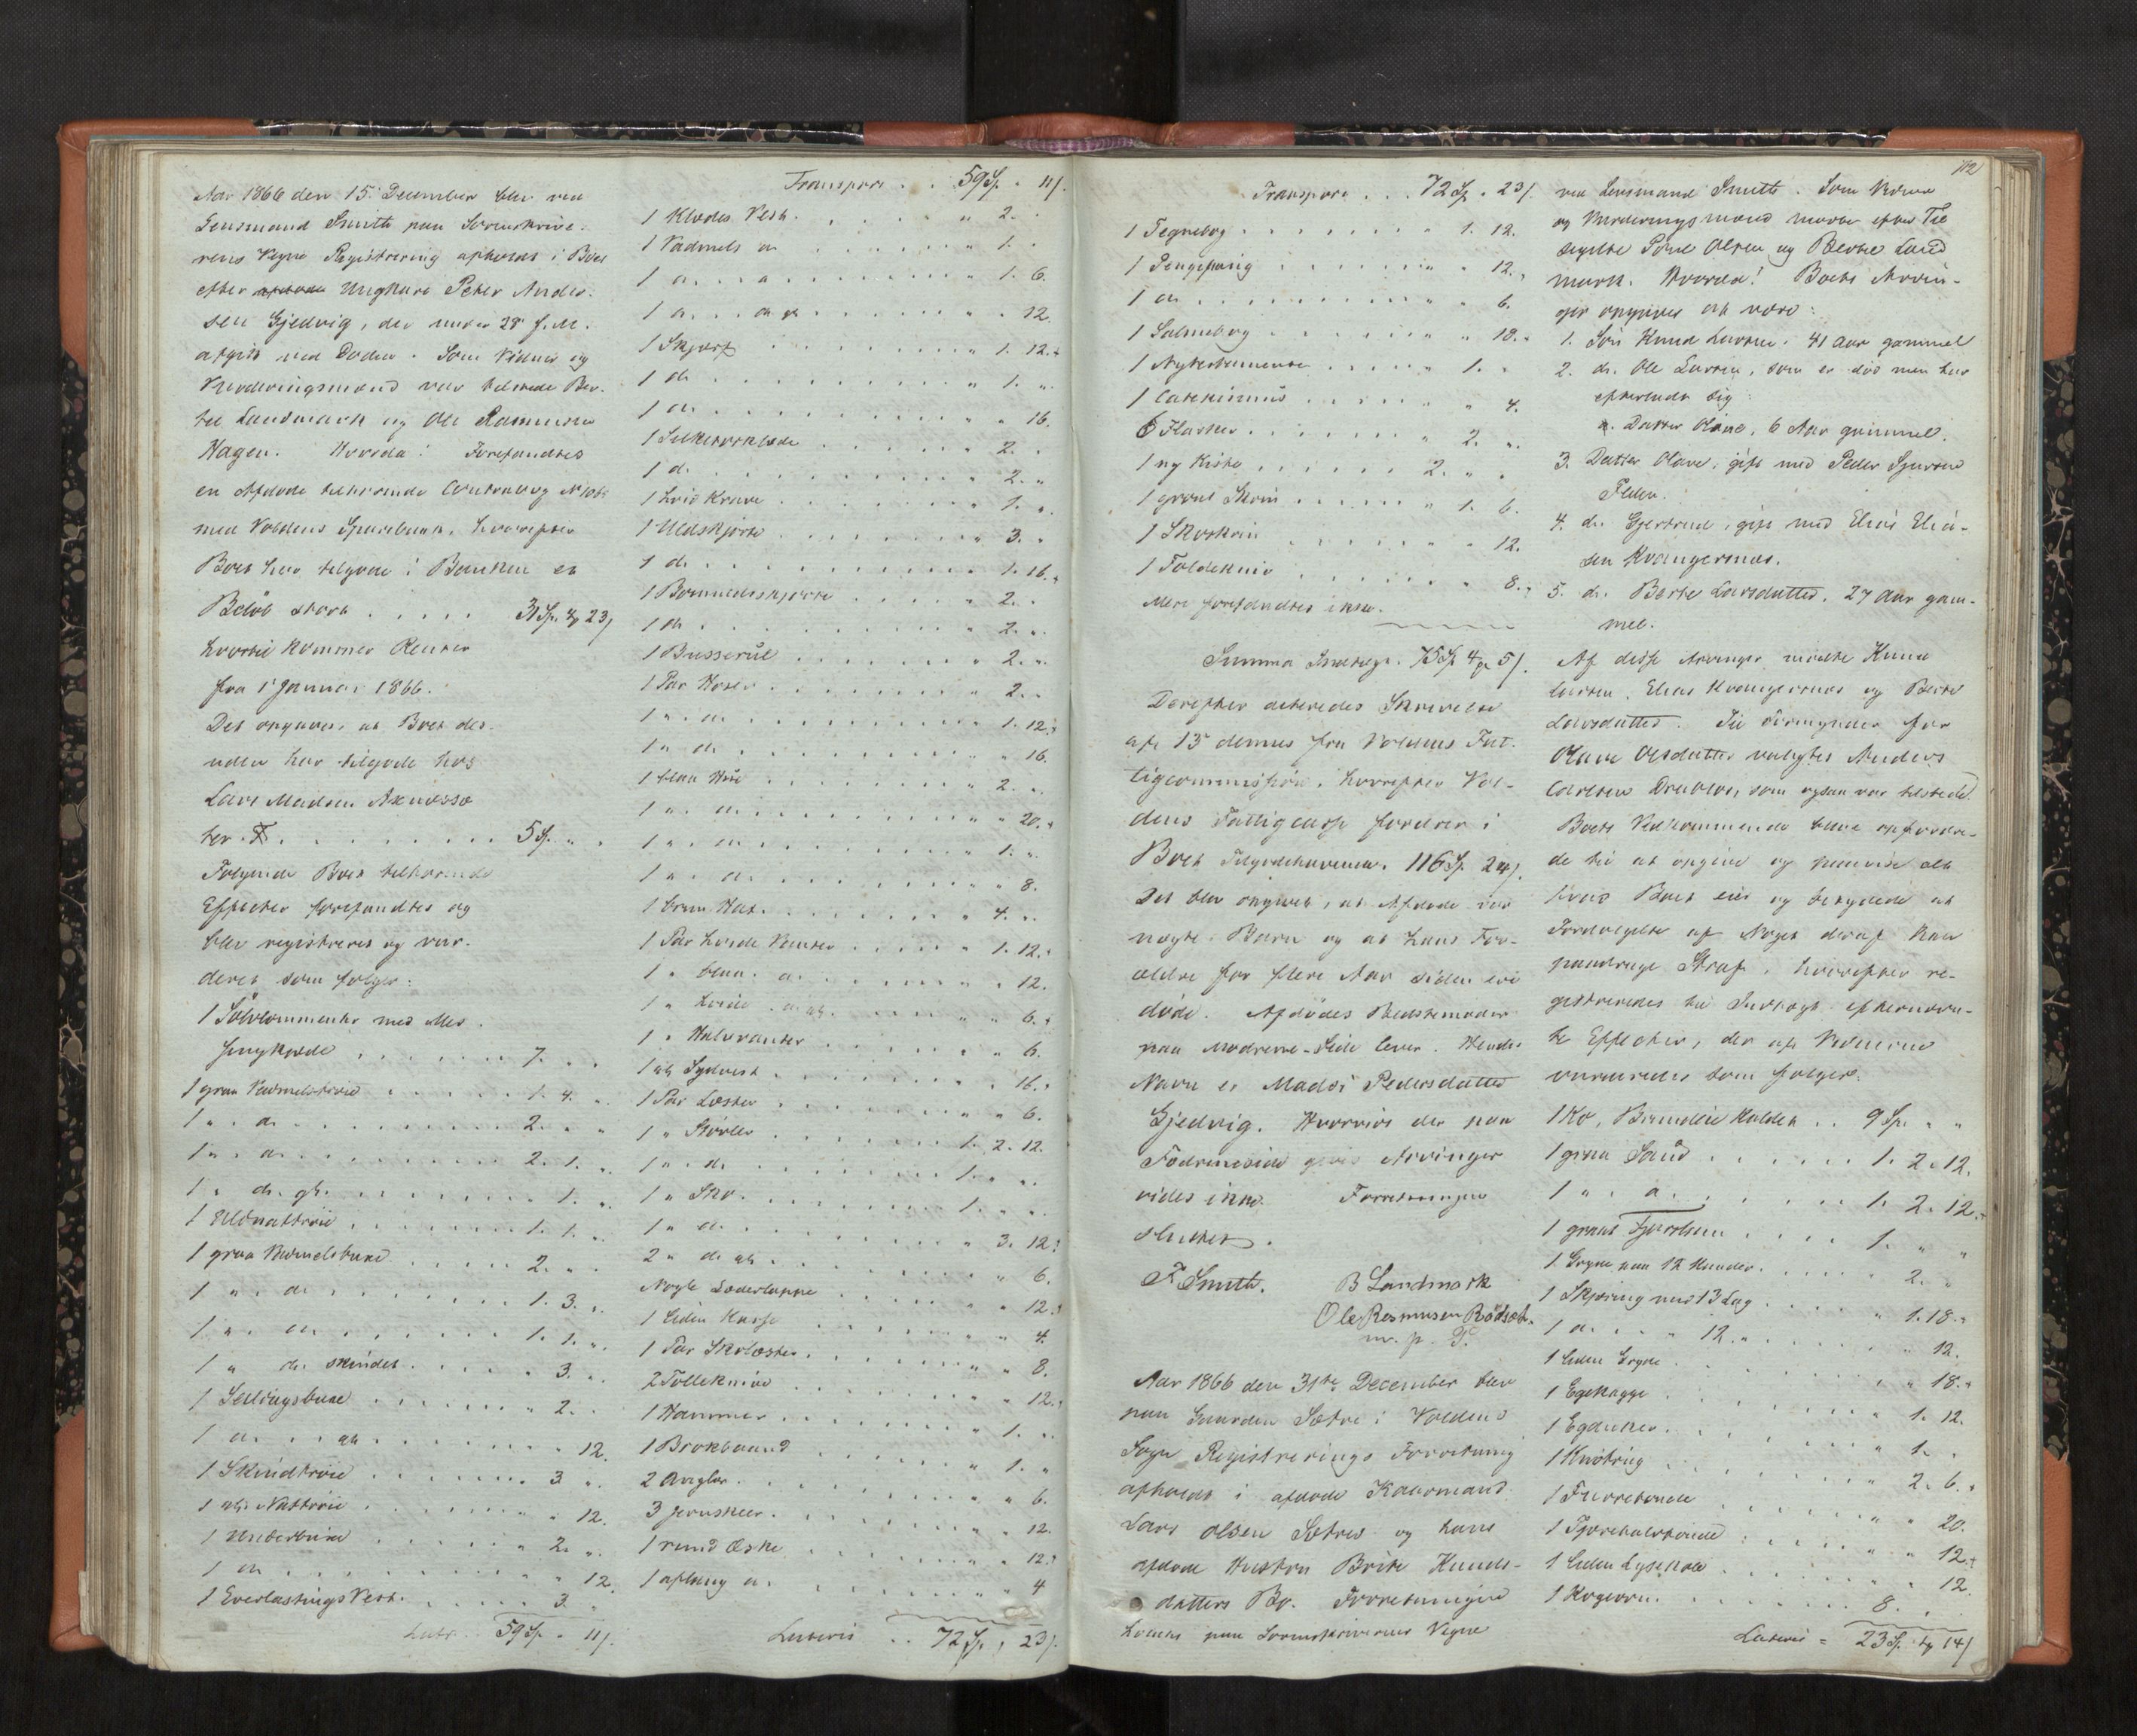 Aar 1866 den 15. December blev ved
Lensmand Smith paa Sorenskrive-
rens Vegne Registrering afholdt i Boet
efter Ungkarl Peter Ander-
sen Gjedvig, der under 28 f. M.
afgik ved Døden. Som Vidner og
Vurderingsmænd var tilstede Ber-
tel Landmark og Ole Rasmussen
Hagen. Hvorda! Forefandtes
en Afdøde tilhørende Contrabog No
med Voldens Sparebank, hvorefter
Boet har tilgode i Banken et
Beløb stort . . . . . 31 Sp. 4 23 s
hvortil kommer Renter
fra 1 Januar 1866.
Det opgaves, at Boet des-
uden har tilgode hos
Lars Madsen Aknesse-
ter . . . . . 5 Sp. " "
Følgende Boet tilhørende
Effecter forefandtes og
blev registreret og vur-
deret som følger:
1 Sølvlommeuhr med Mes-
singkjede . . . . . 7. " "
1 graa Vadmelstrøie . . . . . 1. 4. "
1 " d. . . . . . 2. " "
1 " d. . . . . . 2. 1. "
1 " do. gl. . . . . . 1. "
1 Uldnattrøie . . . . . 1. 1. "
1 graa Vadmelsbuxe . . . . . 2. " "
1 " do . . . . . 1. 3. "
1 " do . . . . . 1. 1. "
1 " do. skindet . . . . . 3. "
1 Seildugsbuxe . . . . . " 2. "
1 do. gl. . . . . . " 12.
1 Skindtrøie . . . . . 3 "
1 gl. Nattrøie . . . . . " " 12.
1 Underbuxe . . . . . " 2. "
1 do . . . . . " " 12.
1 Everlastings Vest . . . . . 3. "
Lats. 59 Sp. " 11 s
Transport . . 59 Sp. " 11 s
1 Klædes Vest . . . . . " 2. "
1 Vadmels do . . . . . " 1. "
1 do . . . . . " 1. 6.
1 do . . gl . . . . . " " 12.
1 Skjærf . . . . . " 1. 12.
1 do . . . . . " 1. "
1 do . . . . . " " 16.
1 Silketørklæde . . . . . " 2. "
1 d. . . . . . " 2. "
1 hvid Krave . . . . . " 1. "
1 Uldskjorte . . . . . " 3. "
1 do . . . . . " 1. 16.
1 Bomuldsskjorte . . . . . " 2. "
1 do . . . . . " 2. "
1 Busserul . . . . . " 2. "
1 Par Hoser . . . . . " 2. "
1 " do . . . . . " 1. 12.
1 " do . . . . . " " 16.
1 blaa Hue . . . . . " 2. "
1 " do . . . . . " " 20.
1 " do . . . . . " 1. "
1 " do . . . . . " " 8.
1 brun Hat . . . . . " 4. "
1 Par hvide Vanter . . . . . " 1. 12.
1 " blaa do . . . . . " " 12.
1 " hvide do gl. . . . . . " " 6.
1 " Halvvanter . . . . . " " 6.
1 gl. Sydvest . . . . . " " 16.
1 Par Læster . . . . . " " 6.
1 " Støvler . . . . . 1. 2. 12.
1 " do . . . . . 1. " "
1 " Sko . . . . . 1. " "
1 " do . . . . . " 3. 12.
2 " do gl. . . . . . " " 6.
Nogle Læderlapper . . . . . " " 12.
1 liden Kasse . . . . . " " 4.
1 Par Skolæster . . . . . " " 8.
2 Tolleknive . . . . . " " 12.
1 Hammer . . . . . " 1. "
1 Brokbaand . . . . . " 1. "
2 Angler . . . . . " " 6.
3 Jernskeer . . . . . " " 12.
1 rund Æske . . . . . " " 12.
1 aflang do . . . . . " " 4
Lateris . . 72 Sp. " 23 s
Transport . . . 72 Sp. " 23 s
1 Tegnebog . . . . . " 1. 12.
1 Pengepung . . . . . " " 12.
1 do . . . . . " " 6.
1 Salmebog . . . . . " " 18.
1 Nytestamente . . . . . " 1. "
1 Catekismus . . . . . " " 4.
6 Flasker . . . . . " 2. "
1 ny Kiste . . . . . 2. " "
1 grønt Skrin . . . . . " 1. 6.
1 Skoskrin . . . . . " " 12.
1 Foldekniv . . . . . " " 8.
Mere forefandtes ikke.
Summa Indtægt. 75 Sp 4 5 s
Derefter acteredes Skrivelse
af 15 dennes fra Voldens Fat-
tigcommission, hvorefter Vol-
dens Fattigcasse fordrer i
Boet Tilgodehavende. 116 Sp. 24 s
Det blev opgivet, at Afdøde var
uægte Barn og at hans For-
ældre for flere Aar siden ere
døde. Afdødes Bedstemoder
paa Modrene-Side lever. Hendes
Navn er Madsi Pedersdatter
Gjedvig. Hvorvidt der paa
Fædreneside gives Arvinger
vides ikke. Forretningen
sluttet.
F. Smith. B Landmark
Ole Rasmusen Rødset
m. p. P.
Aar 1866 den 31te December blev
paa Gaarden Sætre i Voldens
Sogn Registrerings Forretning
afholdt i afdøde Kaarmand
Lars Olsen Sætres og hans
afdøde Hustru Brite Knuds-
datters Bo. Forretningen
holdtes paa Sorenskriverens Vegne
112
ved Lensmand Smith. Som Vidner
og Vurderingsmænd mødte efter Til
sigelse Poul Olsen og Bertel Land
mark. Hvorda! Boets Arvin-
ger opgives at være:
1. Søn Knud Larsen, 41 Aar gammel
2. do. Ole Larsen, som er død men har
efterladt sig:
a. Datter Oline, 6 Aar gammel.
3. Datter Olave, gift med Peder Sjursen
4. do. Gjertrud, gift med Elias Elia-
sen Kvangersnæs.
5. do. Berte Larsdatter, 27 Aar gam-
mel.
Af disse Arvinger mødte Knud
Larsen, Elias Kvangersnæs og Berte
Larsdatter. Til Formynder for
Olsdatter valgtes Anders
som ogsaa var tilstede.
Boets Vedkommende blev opfordre-
de til at opgive og paavise alt
hvad Boet eier og betydede at
Fordølgelse af Noget deraf kan
paadrage Straf, hvorefter re-
gistreredes til Indtægt efternævn-
te Effecter, der af Vidnerne
vurderedes som følger:
1 Ko, kaldet . . 9 Sp. " "
1 graa Saud . . . . . 1. 2. 12.
1 " do . . . . . 1. 2. 12.
1 graat . . . . . 1. " "
1 Gryde paa 12 Kander . . . . . 2. "
1 Skjæring med 13 Lag . . . . . " 1. 18.
1 do . . " 12. " . . . . . " " 12.
1 liden Gryde . . . . . " " 18.
1 Egekagge . . . . . " 1. 12.
1 . . . . . " 1. "
1 . . . . . " 2. 6.
1 . . . . . " " 20.
1 . . . . . " " 12.
1 liden . . . . . " " 12.
1 Kogeovn . . . . . 8. " "
Lateris = 23 Sp. 4 14 s